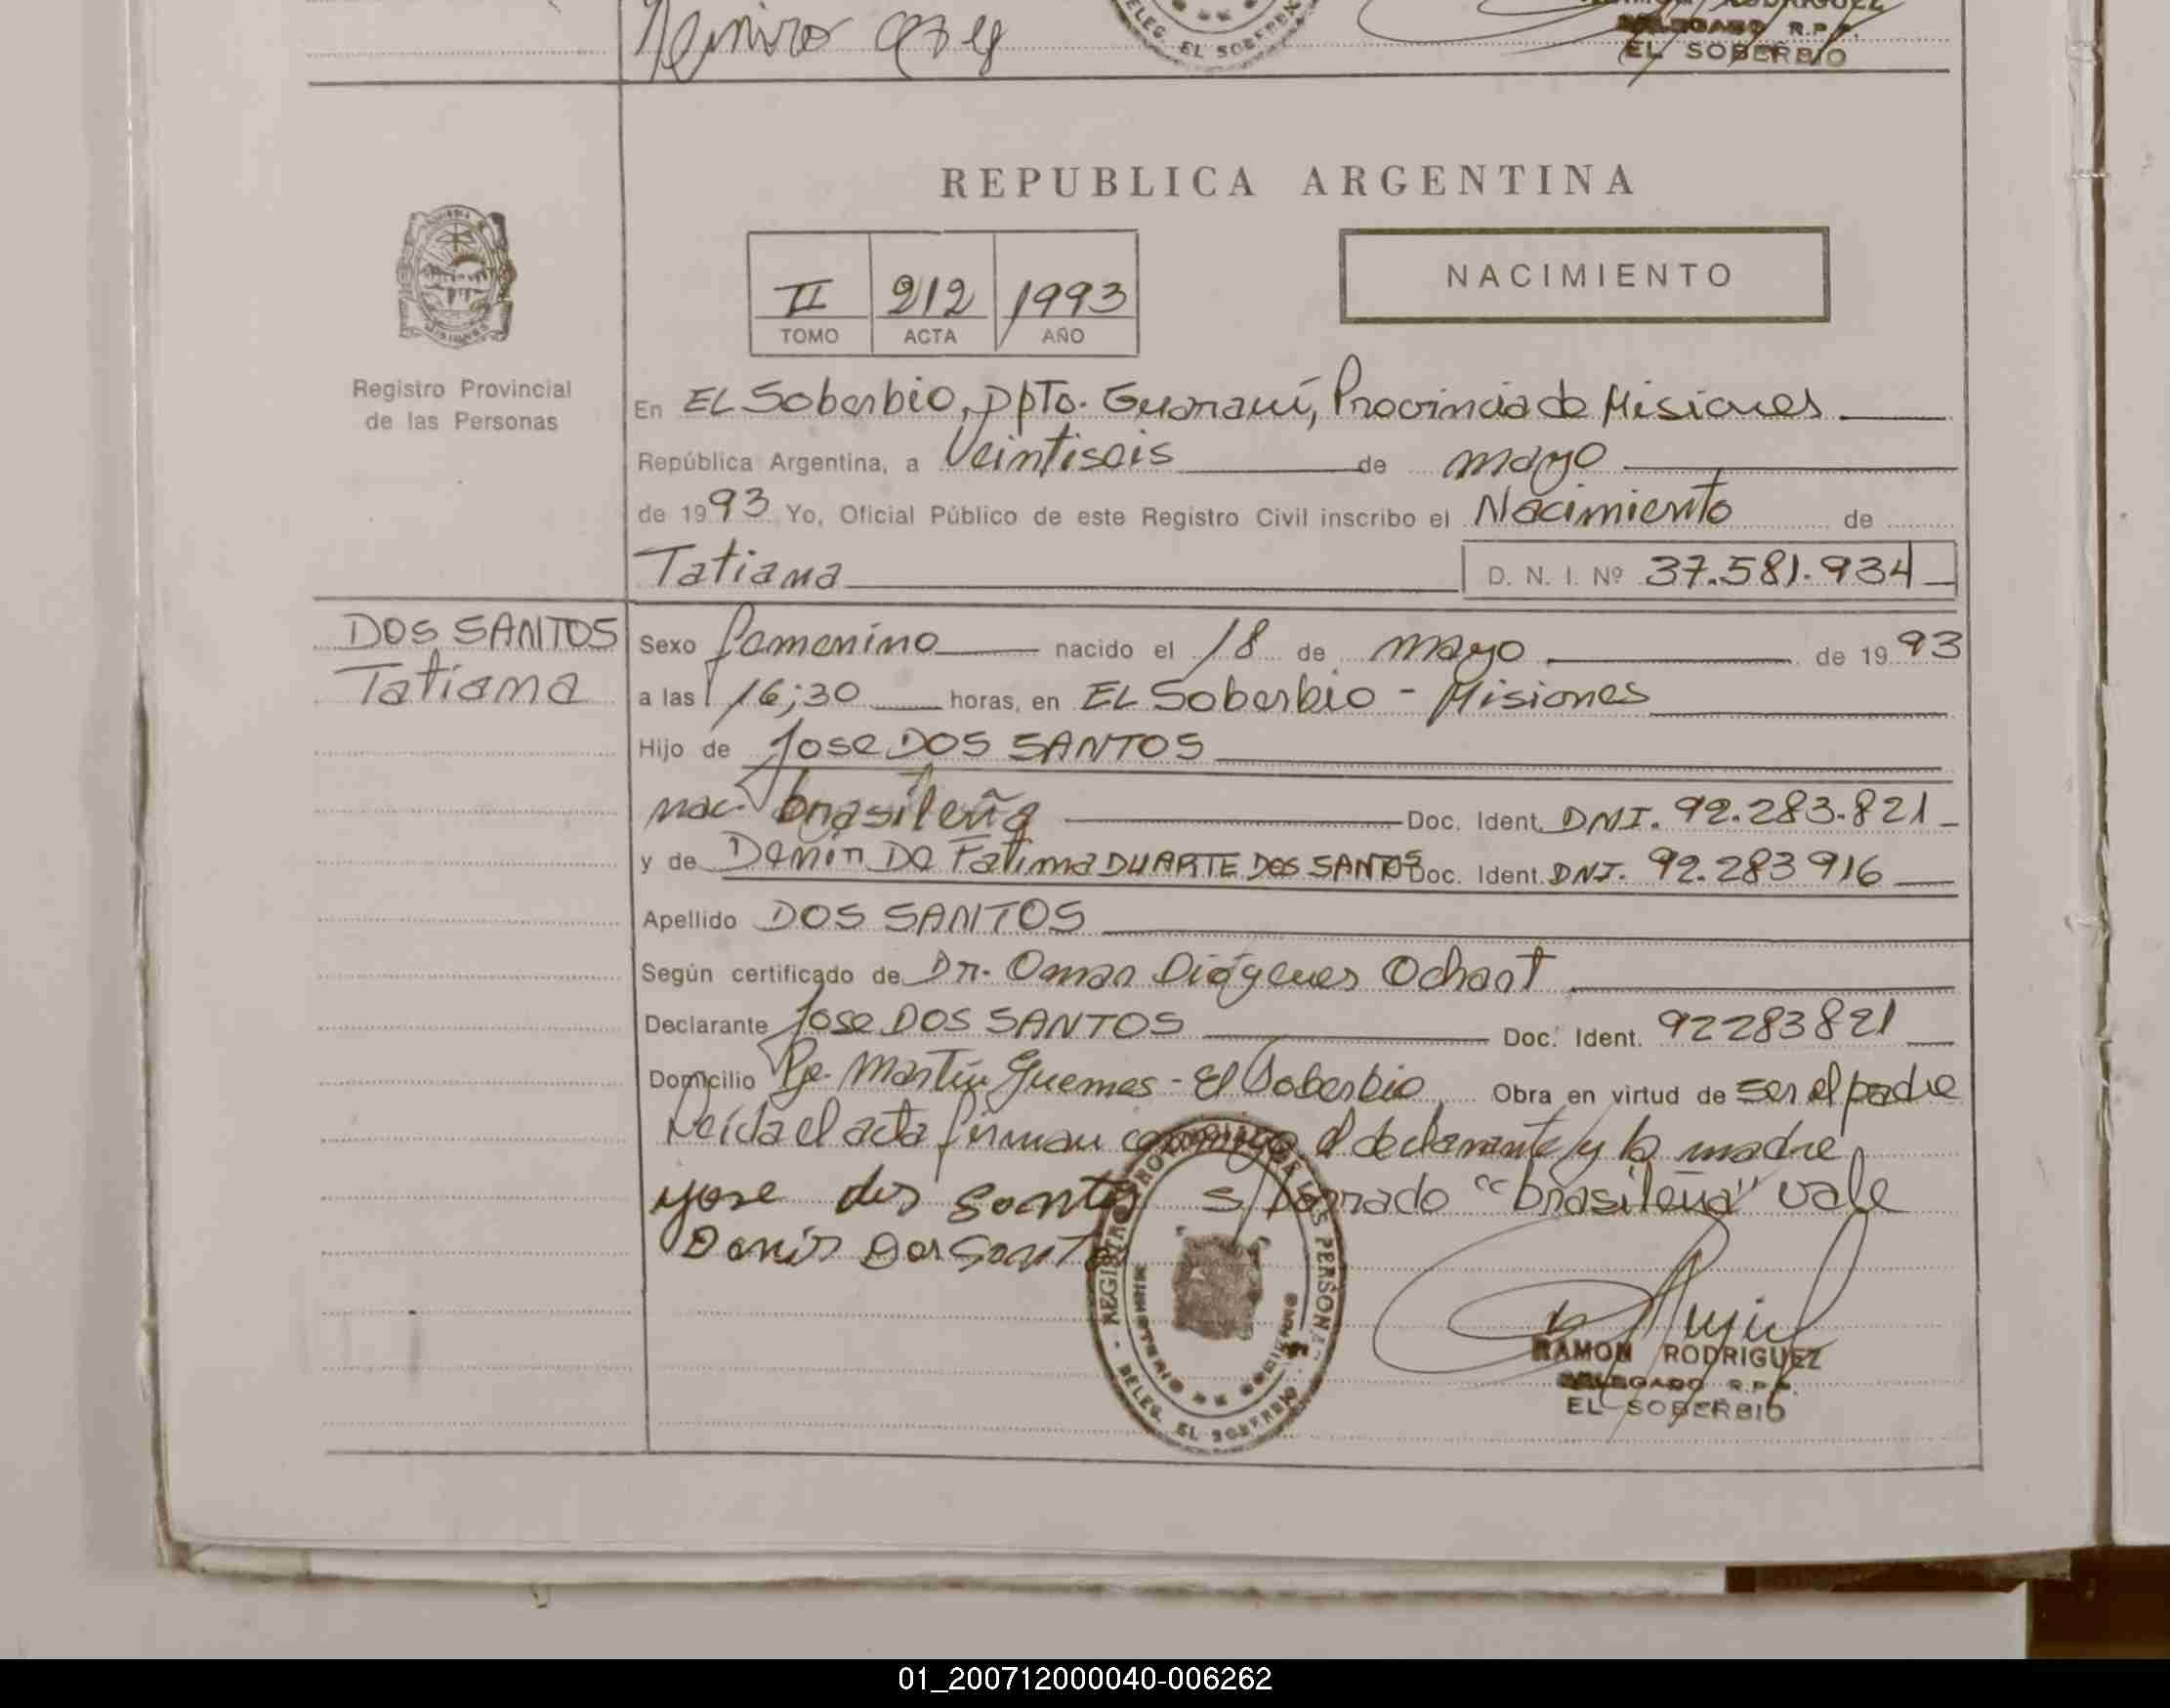 Ramiro
DELEG. EL SOBERBIO
DELEGADO R.P.P.
EL SOBERBIO
REPUBLICA ARGENTINA
II 212 1993
TOMO ACTA AÑO
NACIMIENTO
Registro Provincial
de las Personas
En EL Soberbio, Dpto. Guaraní, Provincia de Misiones
República Argentina, a Veintiseis de mayo
de 1993 Yo, Oficial Público de este Registro Civil inscribo el Nacimiento de
Tatiana D. N. I. Nº 37.581.934
DOS SANTOS
Tatiana
Sexo femenino nacido el 18 de mayo de 1993
a las 16;30 horas, en EL Soberbio - Misiones
Hijo de Jose DOS SANTOS
nac. brasileña Doc. Ident. DNI. 92.283.821
y de Denir De Fatima DUARTE DOS SANTOS Doc. Ident. DNI. 92.283916
Apellido DOS SANTOS
Según certificado de Dr. Omar Diógenes Ochart
Declarante Jose DOS SANTOS Doc. Ident. 92283821
Domicilio Pje. Martín Guemes - El Soberbio Obra en virtud de ser el padre
Leída el acta firman conmigo el declarante y la madre
S/borrado "brasileña" vale
Jose dos Santos
Denir Dos Santos
REGISTRO PROVINCIAL DE LAS PERSONAS
MINISTERIO DE GOBIERNO
DELEG. EL SOBERBIO
RAMON RODRIGUEZ
DELEGADO R.P.P.
EL SOBERBIO
01_200712000040-006262